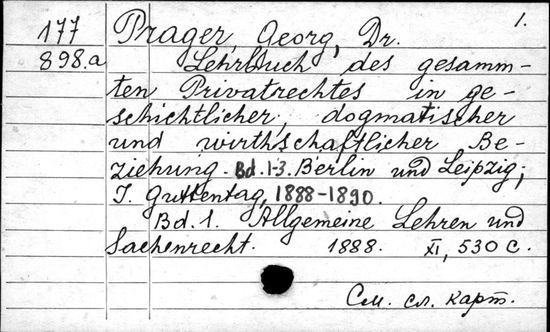 1.
177 Prager, Georg, Dr.
898.a Lehrbuch des gesamm-
ten Privatrechtes in ge-
schichtlicher, dogmatischer
und wirthschaftlicher Be-
ziehung. Bd. 1-3. Berlin und Leipzig;
J. Guttentag, 1888-1890.
Bd. 1. Allgemeine Lehren und
Sachenrecht. 1888. XI, 530 с.
См. сл. карт.